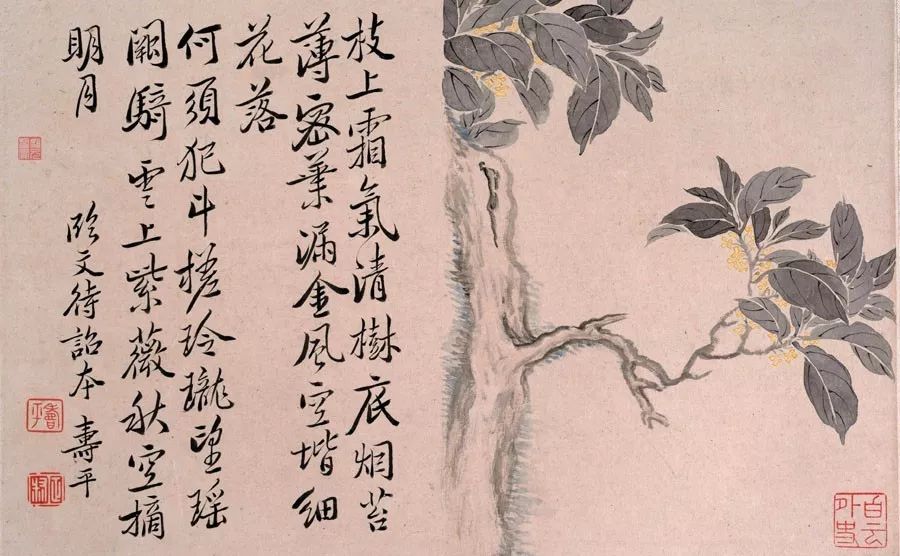 枝上霜氣清樹底烟苔
薄密葉漏金風空堦細
花落
何須犯斗槎玲瓏望瑶
闕騎雲上紫薇秋空摘
明月
臨文待詔本 壽平
壽平
白雲外史